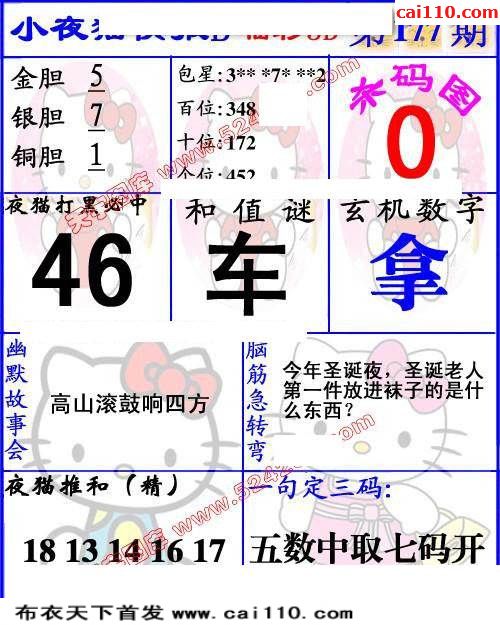 cai110.com
小夜猫 3D 第177期
金胆 5
银胆 7
铜胆 1
包星:3** *7* **2
百位:348
十位:172
个位:452
杀码图
0
夜猫打黑必中
46
和值谜
车
玄机数字
拿
幽默故事会
高山滚鼓响四方
脑筋急转弯
今年圣诞夜，圣诞老人
第一件放进袜子的是什
么东西?
夜猫推和(精)
18 13 14 16 17
一句定三码:
五数中取七码开
布衣天下首发 www.cai110.com